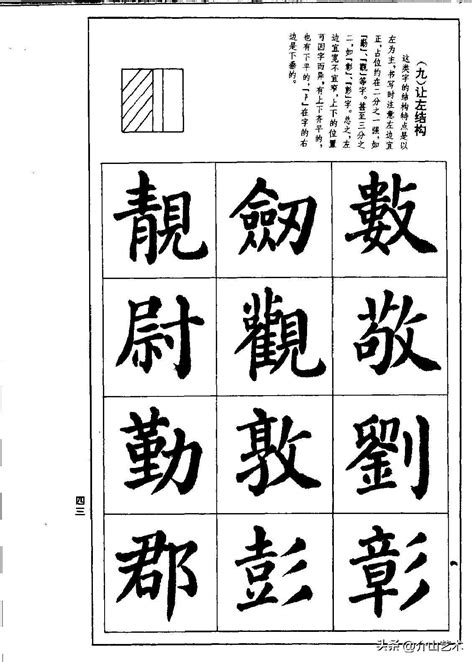 〈九〉让左结构
这类字的结构特点是以
左为主，书写时注意左边宜
正，占位约在二分之一强，如
「勤」、「觀」等字。甚至三分之
二，如「彰」、「彭」字。总之，左
边宜宽不宜窄，上下的位置
可因字而异，有上下齐平的，
也有下平的，「阝」在字的右
边是下垂的。
數敬劉彰
劒觀敦彭
靚尉勤郡
四三
头条@介山艺术